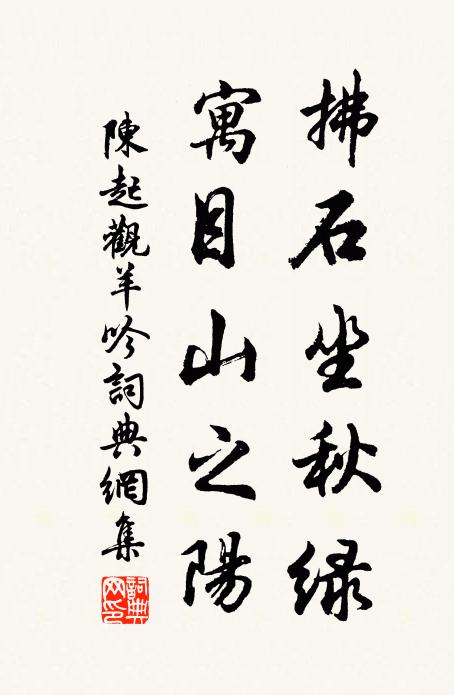 拂石坐秋緑
寓目山之陽
陳起觀羊吟詞典網集
詞典網印